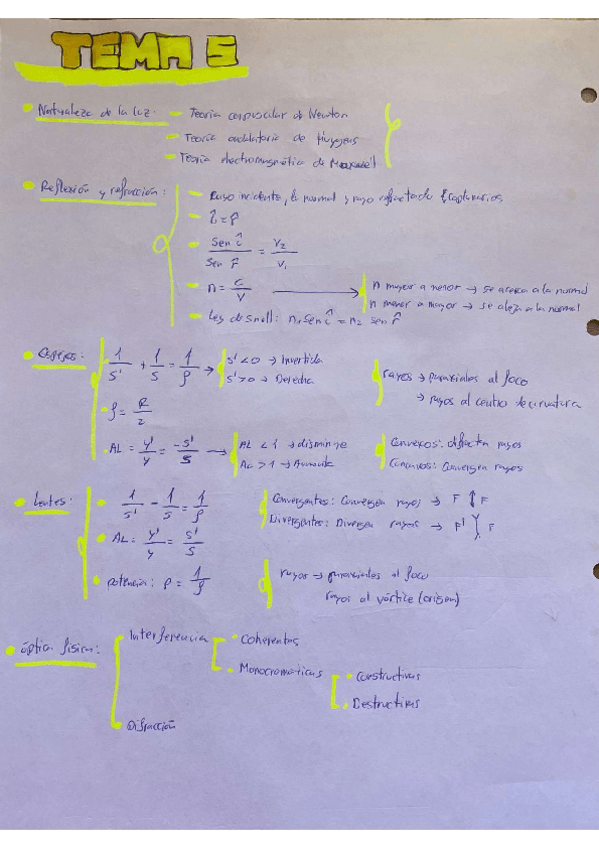 TEMA 5
Naturaleza de la luz: - Teoría corpuscular de Newton
- Teoría ondulatoria de Huygens
- Teoría electromagnética de Maxwell
Reflexión y refracción: - Rayo incidente, la normal y rayo refractado
- î = r̂
- Sen î / Sen r̂ = V₂ / V₁
- n = c / v → n mayor a menor → se acerca a la normal
n menor a mayor → se aleja a la normal
- Ley de Snell: n₁ sen î = n₂ sen r̂
Espejos: 1/s' + 1/s = 1/f → s' < 0 → Invertida
s' > 0 → Derecha
rayos → paraxiales al foco
→ rayos al centro de curvatura
f = R/2
AL = y'/y = -s'/s → AL < 1 → disminuye
AL > 1 → Aumenta
Convexos: difractan rayos
Cóncavos: Convergen rayos
Lentes: 1/s' - 1/s = 1/f
Convergentes: Convergen rayos → F ↕ F
Divergentes: Divergen rayos → F' F
AL: y'/y = s'/s
potencia: P = 1/f
rayos → paraxiales al foco
rayos al vértice (origen)
óptica física: Interferencia
- Coherentes
- Monocromáticas
- Constructivas
- Destructivas
Difracción